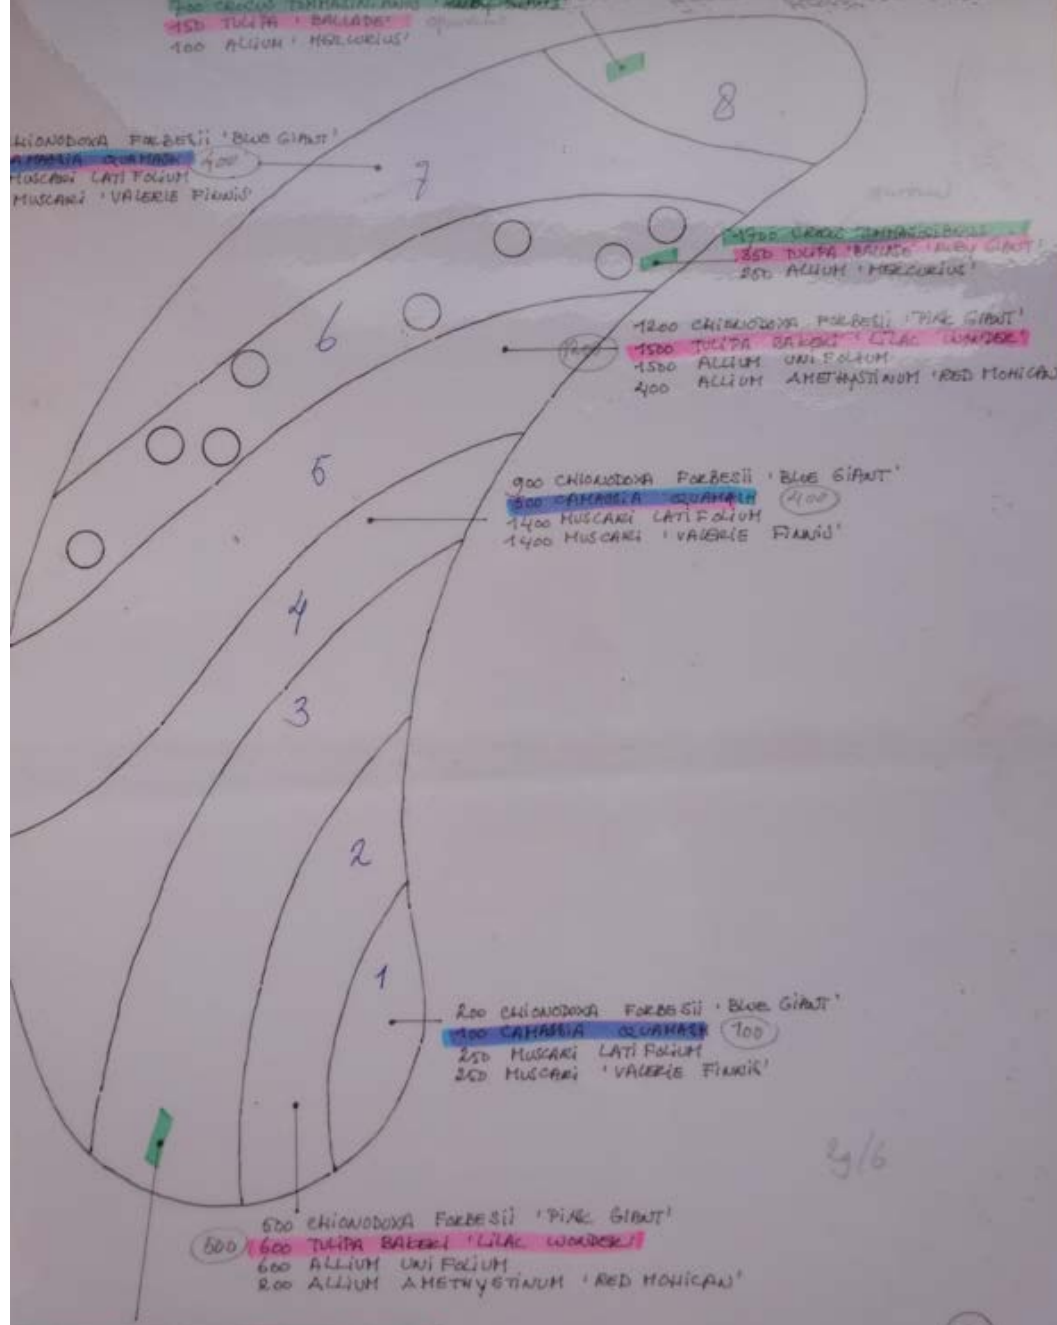 700 CROCUS TOMMASINIANUS 'RUBY GIANT'
150 TULIPA 'BALLADE'
100 ALLIUM 'MERCURIUS'
8
HIONODOXA FORBESII 'BLUE GIANT'
AMASSIA QUAMASH 400
MUSCARI LATIFOLIUM
MUSCARI 'VALERIE FINNIS'
7
1700 CROCUS TOMMASINIANUS
350 TULIPA 'BALLADE' 'RUBY GIANT'
250 ALLIUM 'MERCURIUS'
6
1200 CHIONODOXA FORBESII 'PINK GIANT'
1500 TULIPA BAKERI 'LILAC WONDER'
1500 ALLIUM UNIFOLIUM
400 ALLIUM AMETHYSTINUM 'RED MOHICAN
5
900 CHIONODOXA FORBESII 'BLUE GIANT'
500 CAMASSIA QUAMASH 400
1400 MUSCARI LATIFOLIUM
1400 MUSCARI 'VALERIE FINNIS'
4
3
2
1
200 CHIONODOXA FORBESII 'BLUE GIANT'
100 CAMASSIA QUAMASH 100
250 MUSCARI LATIFOLIUM
250 MUSCARI 'VALERIE FINNIS'
29/6
500 CHIONODOXA FORBESII 'PINK GIANT'
500 600 TULIPA BAKERI 'LILAC WONDER'
600 ALLIUM UNIFOLIUM
200 ALLIUM AMETHYSTINUM 'RED MOHICAN'